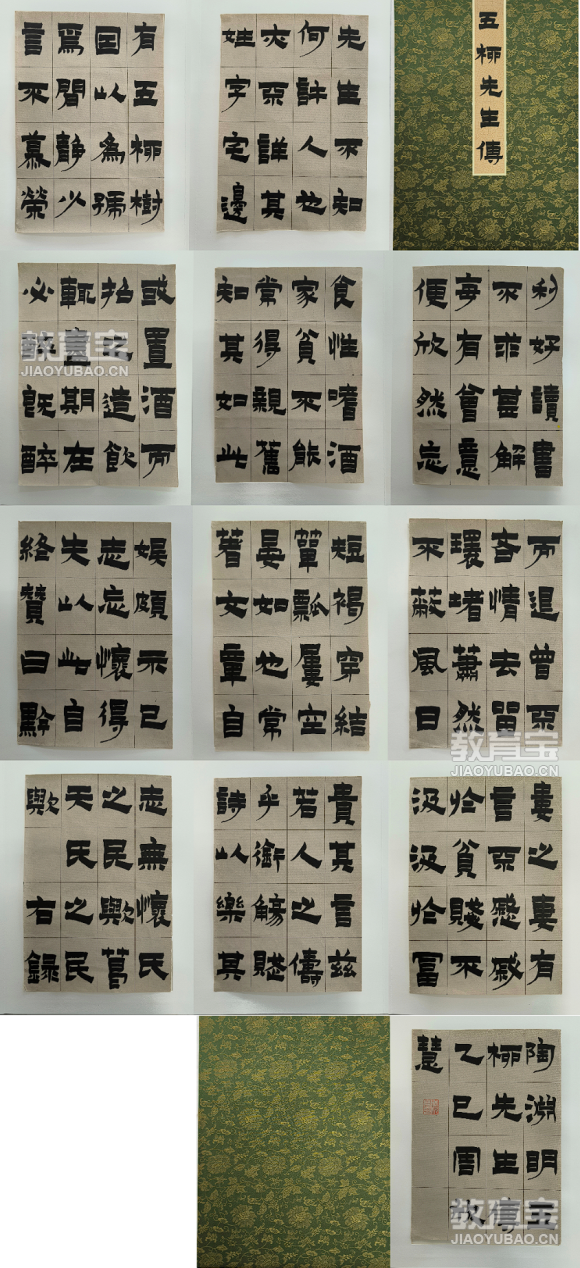 五柳先生傳
先生不知
何許人也
亦不詳其
姓字宅邊
有五柳樹
因以為號
焉閒靜少
言不慕榮
利好讀書
不求甚解
每有會意
便欣然忘
食性嗜酒
家貧不能
常得親舊
知其如此
或置酒而
招之造飲
輒盡期在
必醉既醉
而退曾不
吝情去留
環堵蕭然
不蔽風日
短褐穿結
簞瓢屢空
晏如也常
著文章自
娛頗示己
志忘懷得
失以此自
終贊曰黔
婁之妻有
言不慼慼
於貧賤不
汲汲於富
貴其言茲
若人之儔
乎銜觴賦
詩以樂其
志無懷氏
之民歟葛
天氏之民
歟右錄
陶淵明五
柳先生傳
乙巳周敏
慧
教育宝
JIAOYUBAO.CN
教育宝
JIAOYUBAO.CN
教育宝
JIAOYUBAO.CN